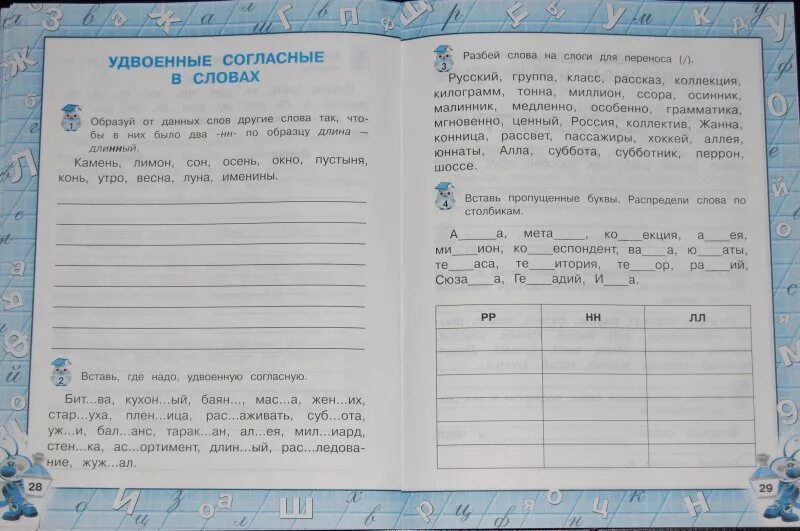 УДВОЕННЫЕ СОГЛАСНЫЕ
В СЛОВАХ
1 Образуй от данных слов другие слова так, что-
бы в них было два -нн- по образцу длина —
длинный.
Камень, лимон, сон, осень, окно, пустыня,
конь, утро, весна, луна, именины.
2 Вставь, где надо, удвоенную согласную.
Бит...ва, кухон...ый, баян..., мас...а, жен...их,
стар...уха, плен...ица, рас...аживать, суб...ота,
уж...и, бал...анс, тарак...ан, ал...ея, мил...иард,
стен...ка, ас...ортимент, длин...ый, рас...ледова-
ние, жуж...ал.
28
3 Разбей слова на слоги для переноса (/).
Русский, группа, класс, рассказ, коллекция,
килограмм, тонна, миллион, ссора, осинник,
малинник, медленно, особенно, грамматика,
мгновенно, ценный, Россия, коллектив, Жанна,
конница, рассвет, пассажиры, хоккей, аллея,
юннаты, Алла, суббота, субботник, перрон,
шоссе.
4 Вставь пропущенные буквы. Распредели слова по
столбикам.
А____а, мета____, ко____екция, а____ея,
ми____ион, ко____еспондент, ва____а, ю____аты,
те____аса, те____итория, те____ор, ра____ий,
Сюза____а, Ге____адий, И____а.
РР НН ЛЛ
29